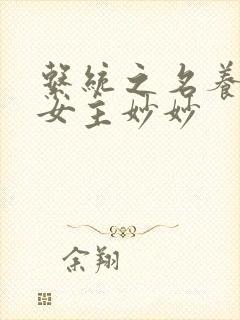 繫統之名養
女主妙妙
余翔